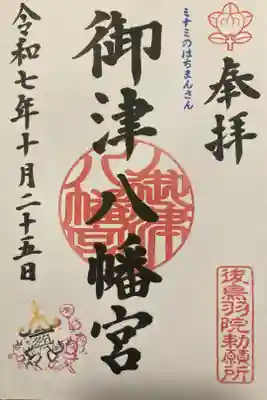 奉拝
後鳥羽院勅願所
ミナミのはちまんさん
御津八幡宮
御津八幡宮
令和七年十月二十五日